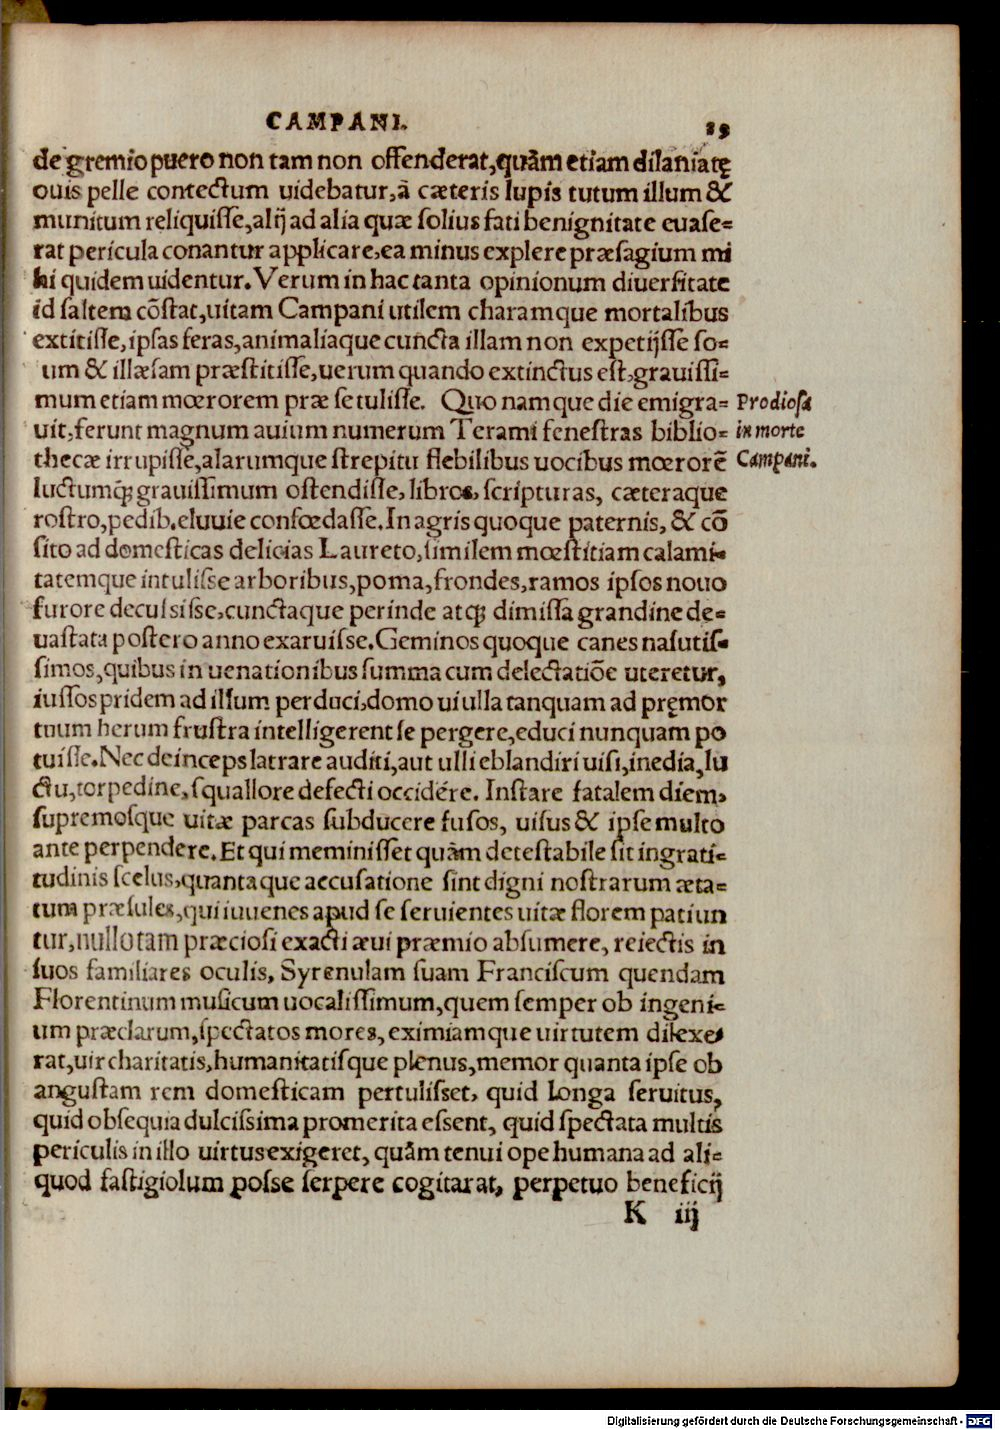 CAMPANI. 29
de gremio puero non tam non offenderat,quâm etiam dilaniatę
ouis pelle contectum uidebatur,à cæteris lupis tutum illum &
munitum reliquisse,alij ad alia quæ solius fati benignitate euase-
rat pericula conantur applicare,ea minus explere præsagium mi
hi quidem uidentur. Verum in hac tanta opinionum diuersitate
id saltem cõstat,uitam Campani utilem charamque mortalibus
extitisse,ipsas feras,animaliaque cuncta illam non expetijsse so-
um & illæsam præstitisse,uerum quando extinctus est,grauissi-
mum etiam mœrorem præ se tulisse. Quo namque die emigra-
uit,ferunt magnum auium numerum Terami fenestras biblio-
thecæ irrupisse,alarumque strepitu flebilibus uocibus mœrorẽ
luctumq́; grauissimum ostendisse, libros, scripturas, cæteraque
rostro,pedib.eluuie confœdasse.In agris quoque paternis, & cõ
sito ad domesticas delicias Laureto,similem mœstitiam calami-
tatemque intulisse arboribus,poma,frondes,ramos ipsos nouo
furore decussisse,cunctaque perinde atq; dimissa grandine de-
uastata postero anno exaruisse.Geminos quoque canes nasutis-
simos,quibus in uenationibus summa cum delectatiõe uteretur,
iussos pridem ad illum perduci,domo ui ulla tanquam ad pręmor
tuum herum frustra intelligerent se pergere,educi nunquam po
tuisse.Nec deinceps latrare auditi,aut ulli eblandiri uisi,inedia,lu
ctu,torpedine,squallore defecti occidére. Instare fatalem diem,
supremosque uitæ parcas subducere fusos, uisus & ipse multo
ante perpendere.Et qui meminisset quàm detestabile sit ingrati-
tudinis scelus,quantaque accusatione sint digni nostrarum æta-
tum præsules,qui iuuenes apud se seruientes uitæ florem patiun
tur,nullo tam præciosi exacti æui præmio absumere, reiectis in
suos familiares oculis, Syrenulam suam Franciscum quendam
Florentinum musicum uocalissimum,quem semper ob ingeni-
um præclarum,spectatos mores, eximiamque uirtutem dilexe-
rat,uir charitatis,humanitatisque plenus,memor quanta ipse ob
angustam rem domesticam pertulisset, quid longa seruitus,
quid obsequia dulcissima promerita essent, quid spectata multis
periculis in illo uirtus exigeret, quâm tenui ope humana ad ali-
quod fastigiolum posse serpere cogitarat, perpetuo beneficij
K iij
Prodiosa
in morte
Campani.
Digitalisierung gefördert durch die Deutsche Forschungsgemeinschaft - DFG